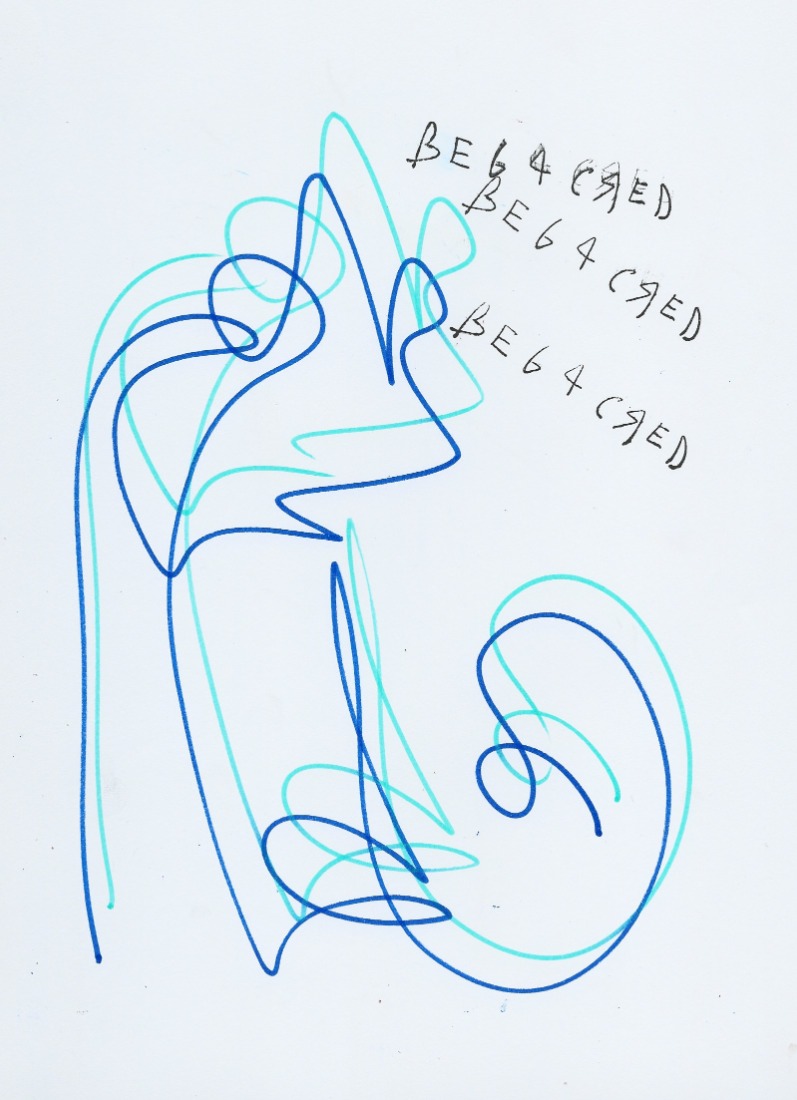 BE64 CЯED
BE64 CЯED
BE64 CЯED